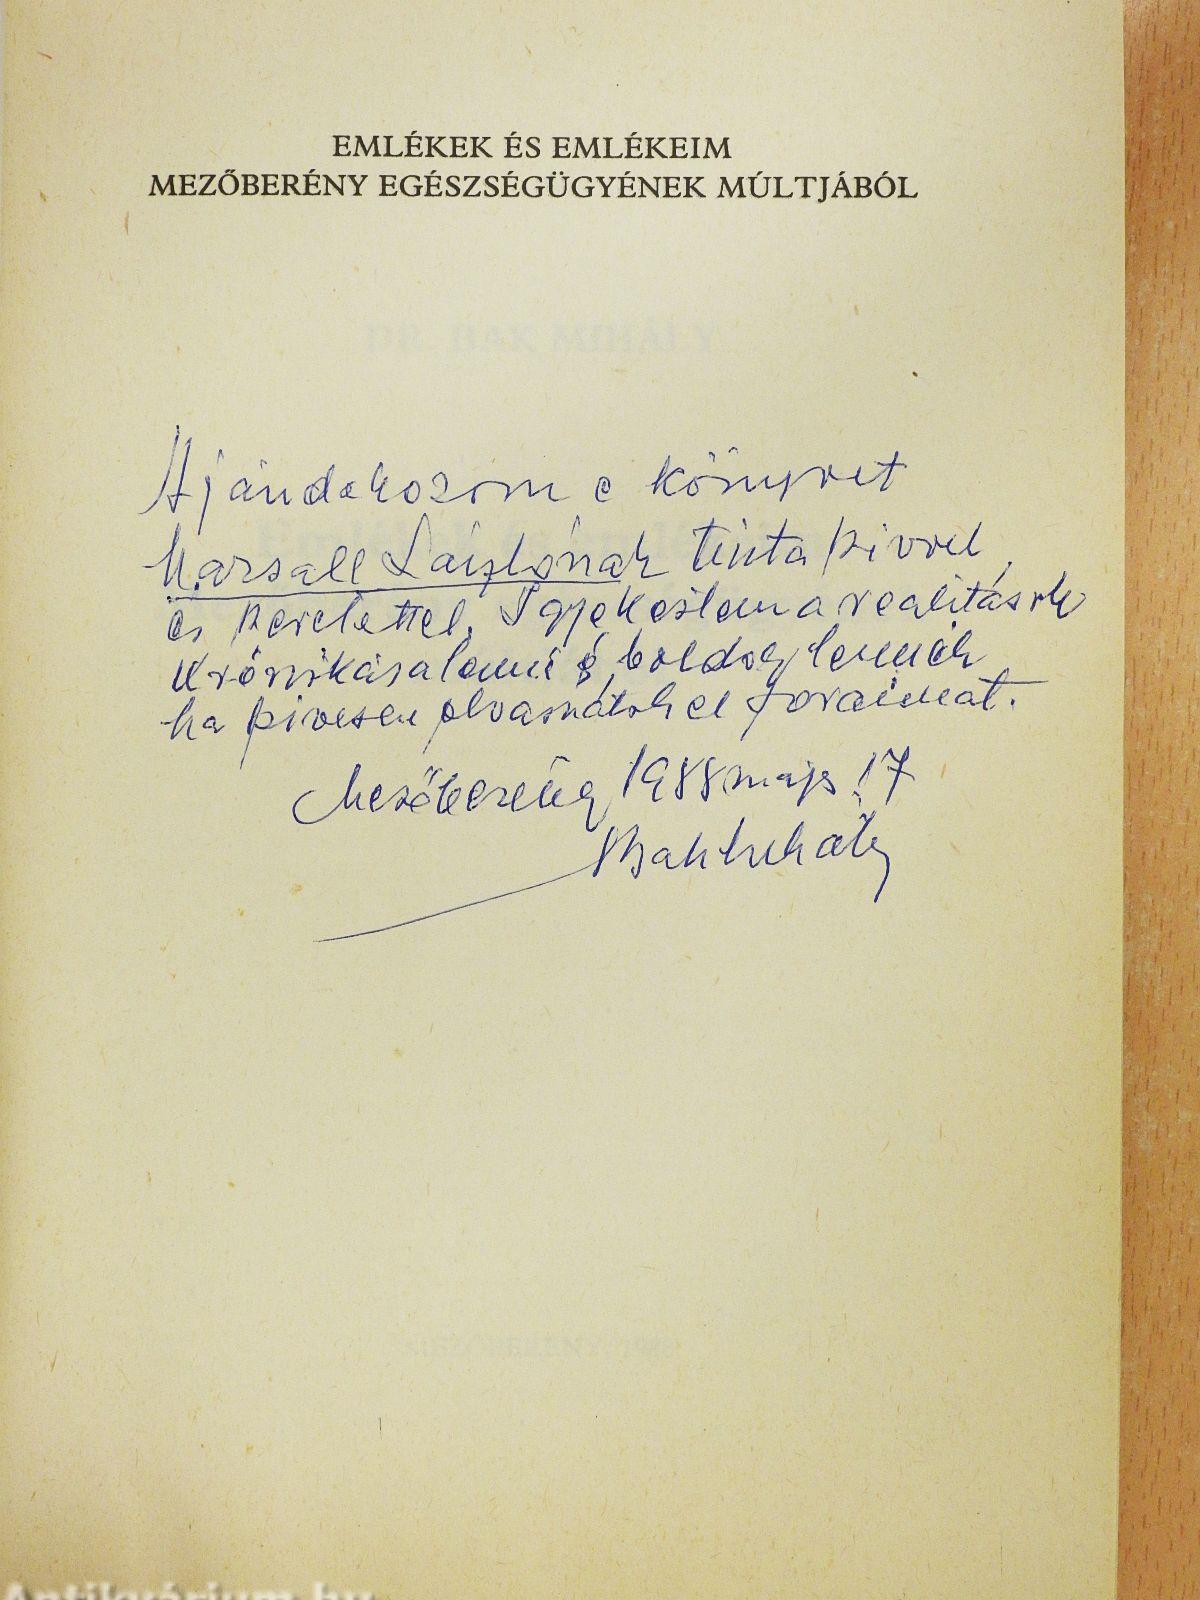 EMLÉKEK ÉS EMLÉKEIM
MEZŐBERÉNY EGÉSZSÉGÜGYÉNEK MÚLTJÁBÓL
DR. BAK MIHÁLY
Ajándékozom e könyvet
Marsall Lászlónak tiszta szívvel
és szeretettel. Igyekeztem a realitások
krónikása lenni s boldog lennék
ha szívesen olvasnátok el soraimat.
Mezőberény 1988 május 17
Bak Mihály
MEZŐBERÉNY,
Antikvárium.hu